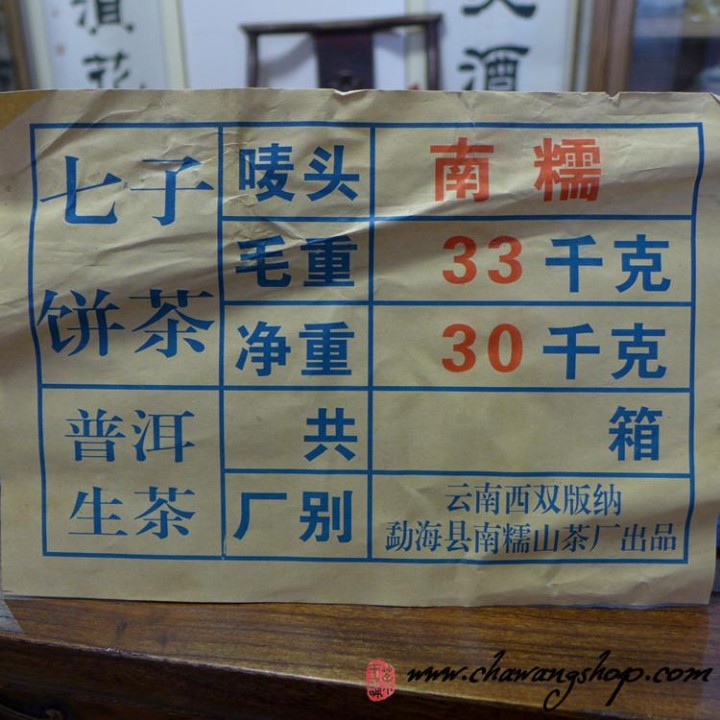 酒
七子
饼茶
普洱
生茶
唛头 南糯
毛重 33千克
净重 30千克
共 箱
厂别 云南西双版纳
勐海县南糯山茶厂出品
www.chawangshop.com